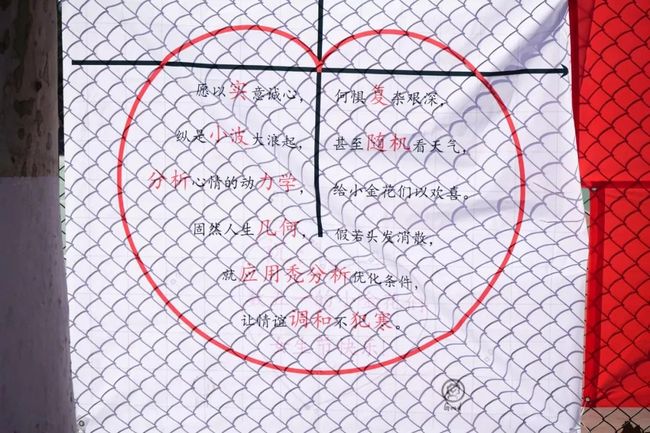 愿以实意诚心， 何惧复杂艰深，
纵是小波大浪起， 甚至随机看天气，
分析心情的动力学， 给小金花们以欢喜。
固然人生几何， 假若头发消散，
就应用秃分析优化条件，
让情谊调和不犯寒。